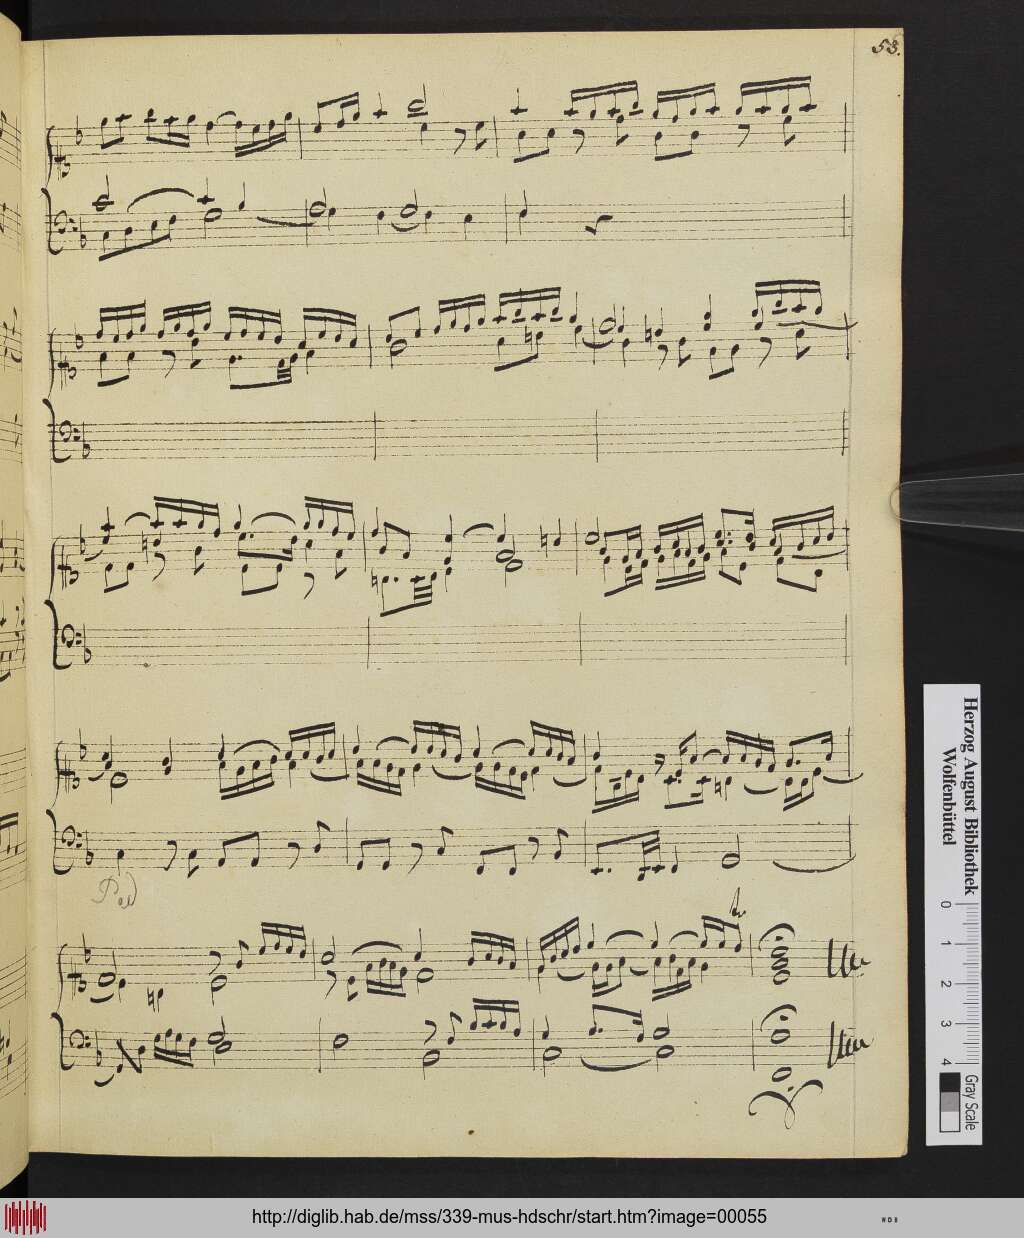 53.
Ped
Herzog August Bibliothek
Wolfenbüttel
0 1 2 3 4
Gray Scale
http://diglib.hab.de/mss/339-mus-hdschr/start.htm?image=00055